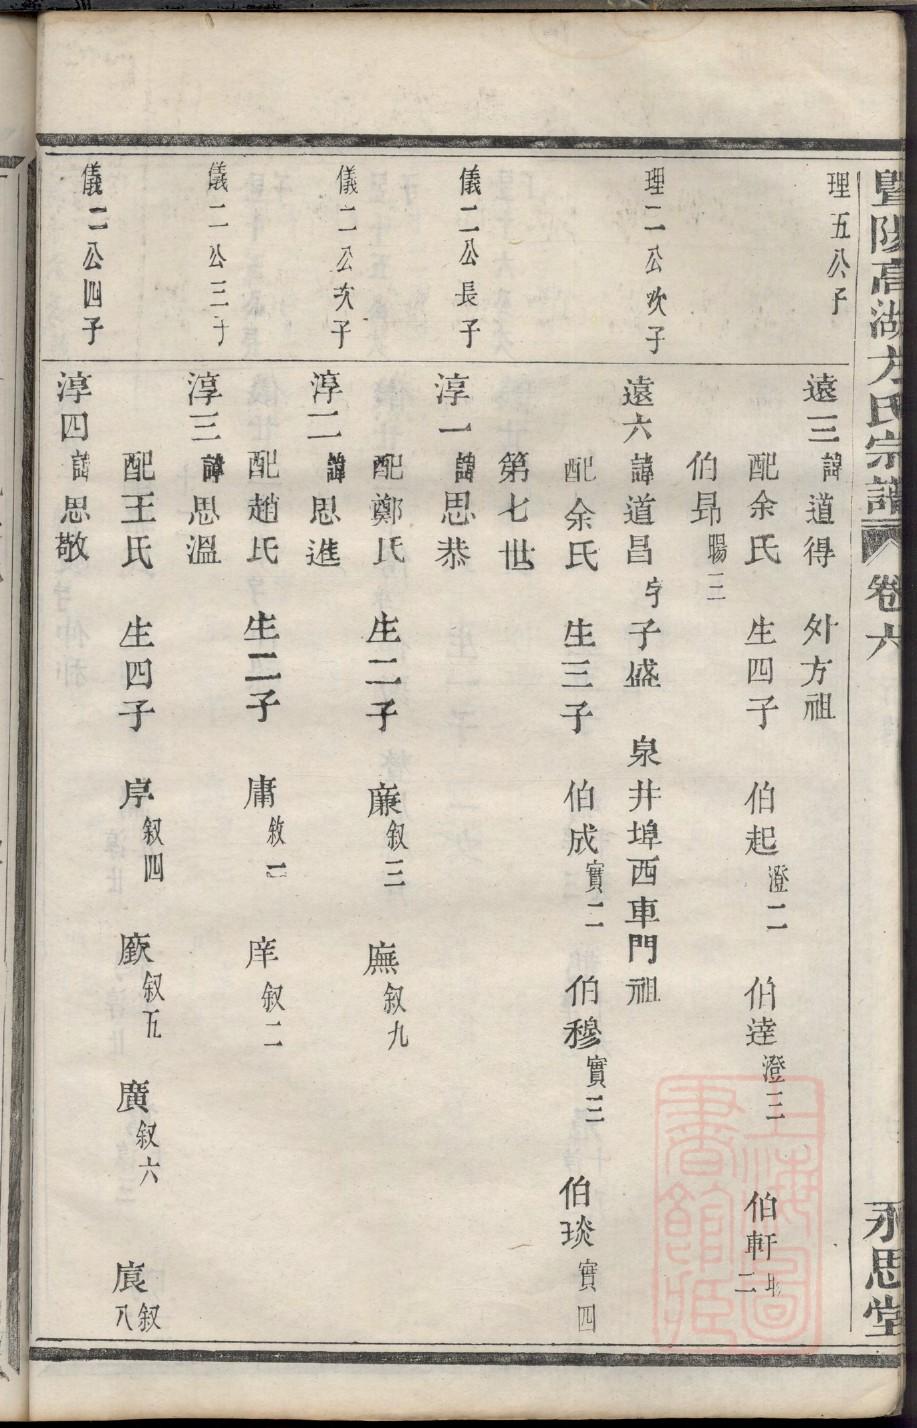 暨陽高湖方氏宗譜 卷六 永思堂
理五公子
遠三諱道得 外方祖
配余氏 生四子 伯起澄二 伯逹澄三 伯軒 二
伯昻暘三
理二公次子
遠六諱道昌字子盛 泉井埠西車門祖
配余氏 生三子 伯成實二 伯穆實三 伯琰實四
第七世
儀二公長子
淳一諱思恭
配鄭氏 生二子 亷叙三 廡叙九
儀二公次子
淳二諱思進
配趙氏 生二子 庸敘一 庠叙二
儀二公三子
淳三諱思溫
配王氏 生四子 叙四 叙五 廣叙六 叙八
儀二公四子
淳四諱思敬
上海圖書館藏